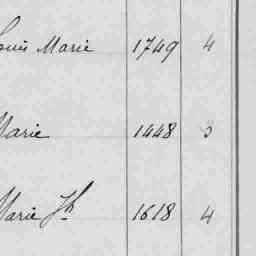 Louis Marie 1749 4
Marie 1448 3
Marie Jh 1618 4